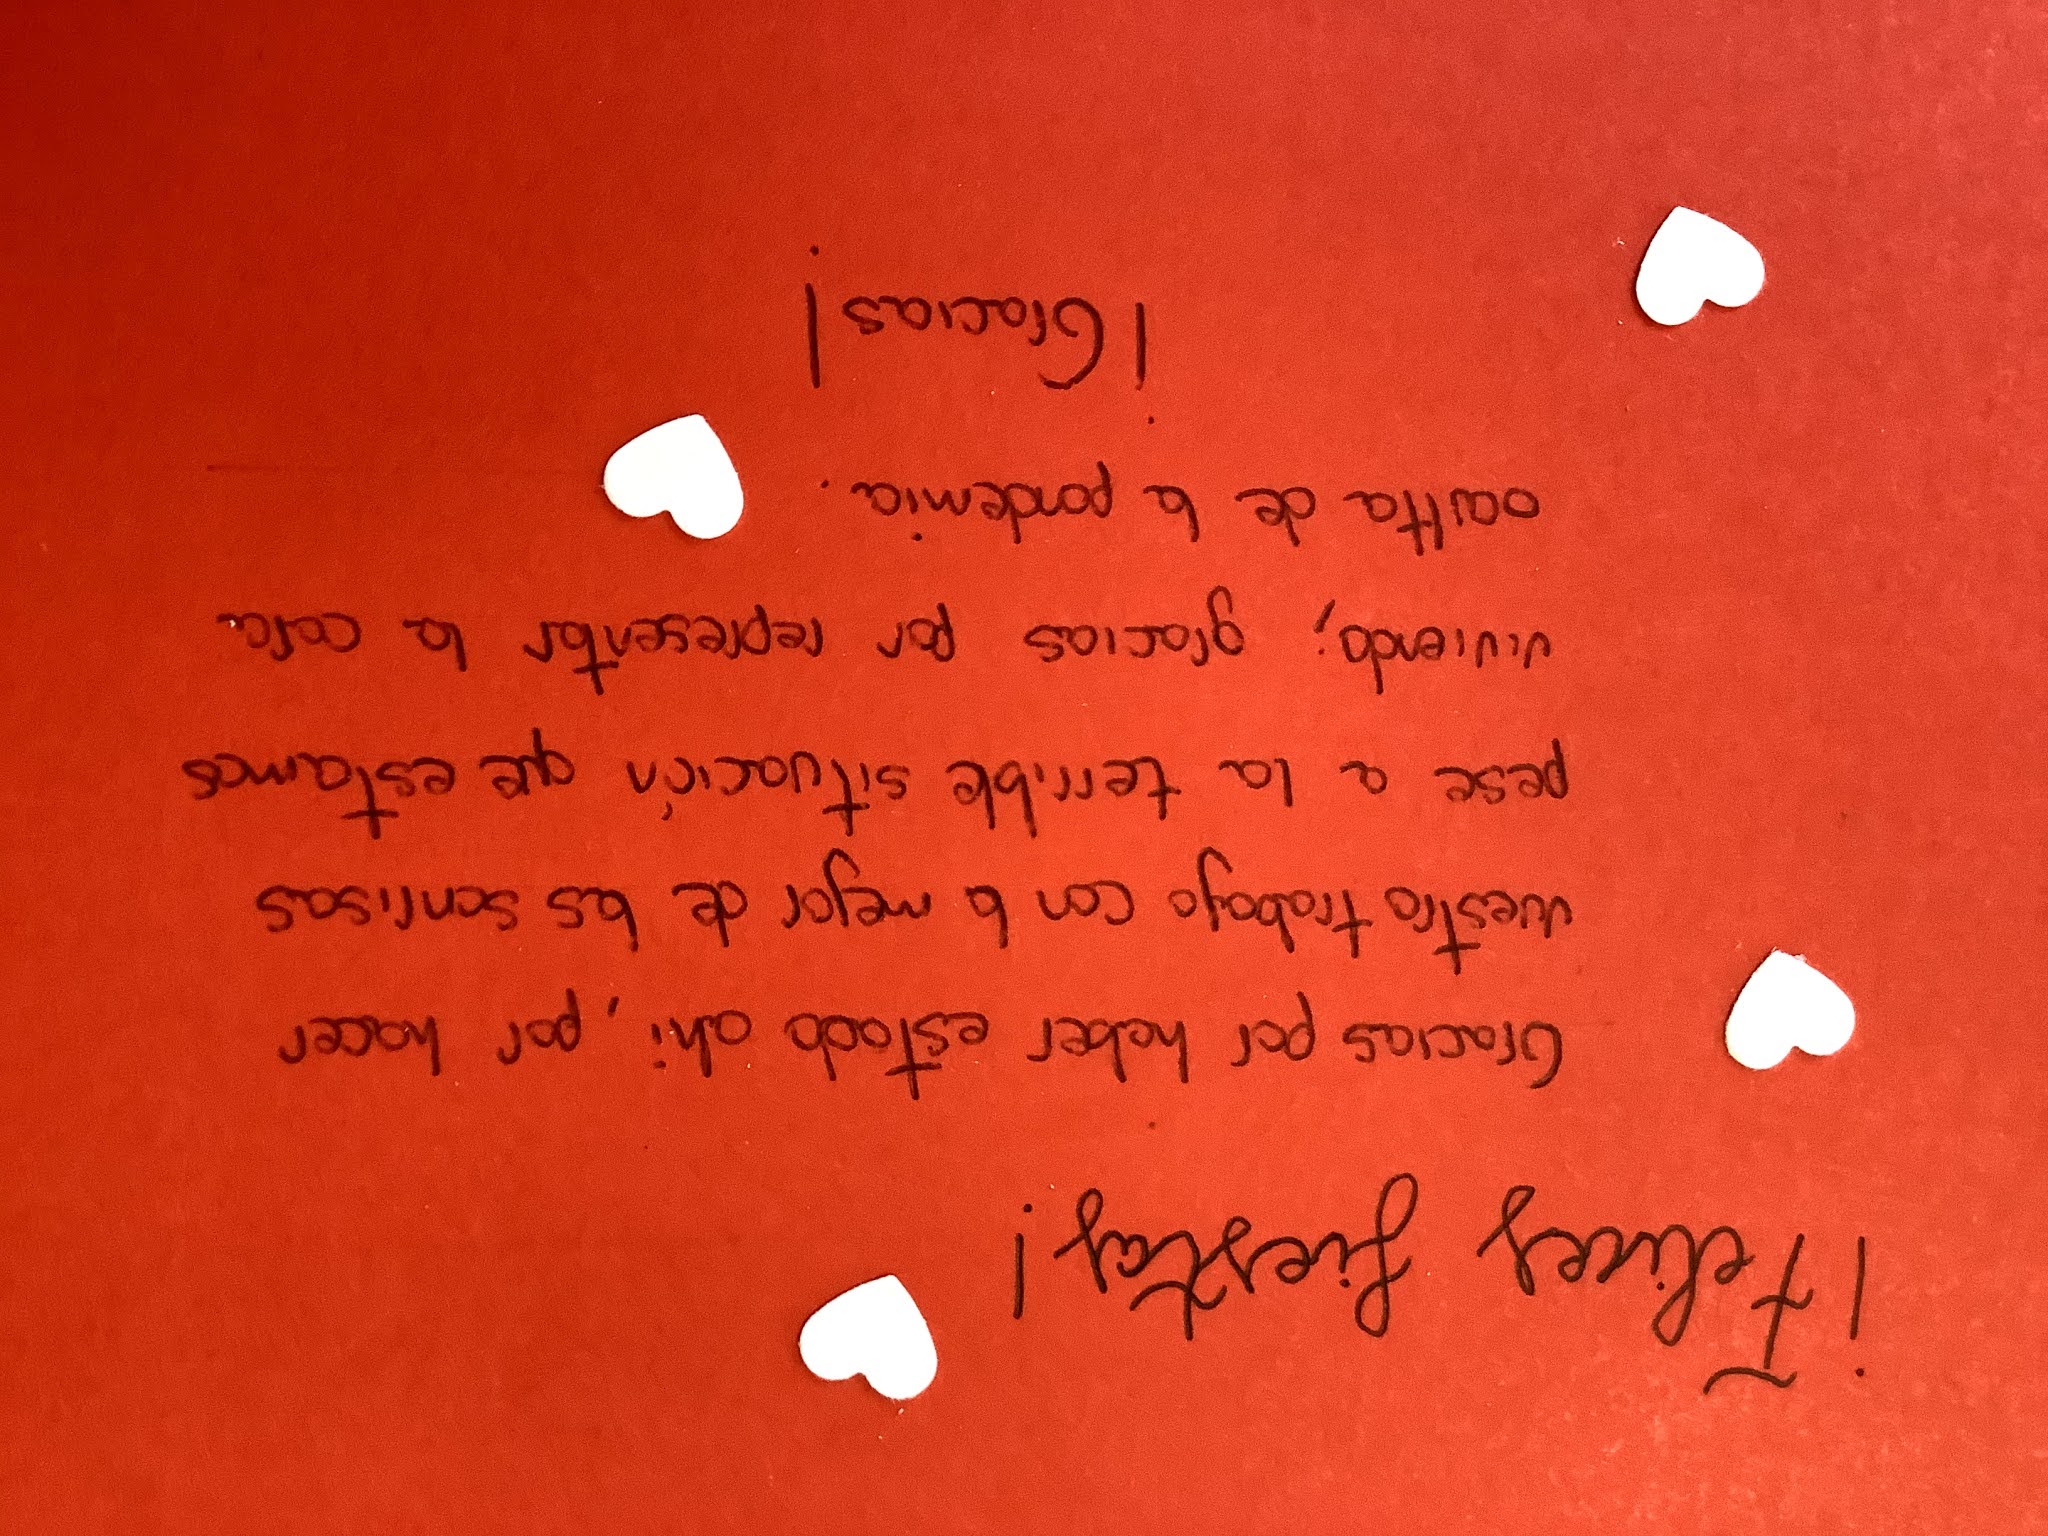 ¡Felices fiestas!
Gracias por haber estado ahi, por hacer
vuestro trabajo con la mejor de las sonrisas
pese a la terrible situación que estamos
viviendo; gracias por representar la cara
oculta de la pandemia.
¡Gracias!